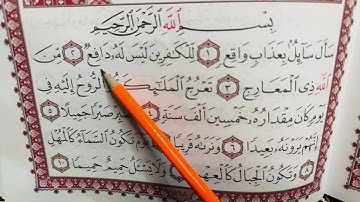 بِسْمِ اللَّهِ الرَّحْمَٰنِ الرَّحِيمِ
سَأَلَ سَائِلٌ بِعَذَابٍ وَاقِعٍ ١ لِلْكَافِرِينَ لَيْسَ لَهُ دَافِعٌ ٢ مِنَ
اللَّهِ ذِي الْمَعَارِجِ ٣ تَعْرُجُ الْمَلَائِكَةُ وَالرُّوحُ إِلَيْهِ فِي
يَوْمٍ كَانَ مِقْدَارُهُ خَمْسِينَ أَلْفَ سَنَةٍ ٤ صَبْرًا جَمِيلًا ٥
إِنَّهُمْ يَرَوْنَهُ بَعِيدًا ٦ وَنَرَاهُ قَرِيبًا يَوْمَ تَكُونُ السَّمَاءُ كَالْمُهْلِ ٨
وَتَكُونُ الْجِبَالُ كَالْعِهْنِ وَلَا يَسْأَلُ حَمِيمٌ حَمِيمًا ١٠